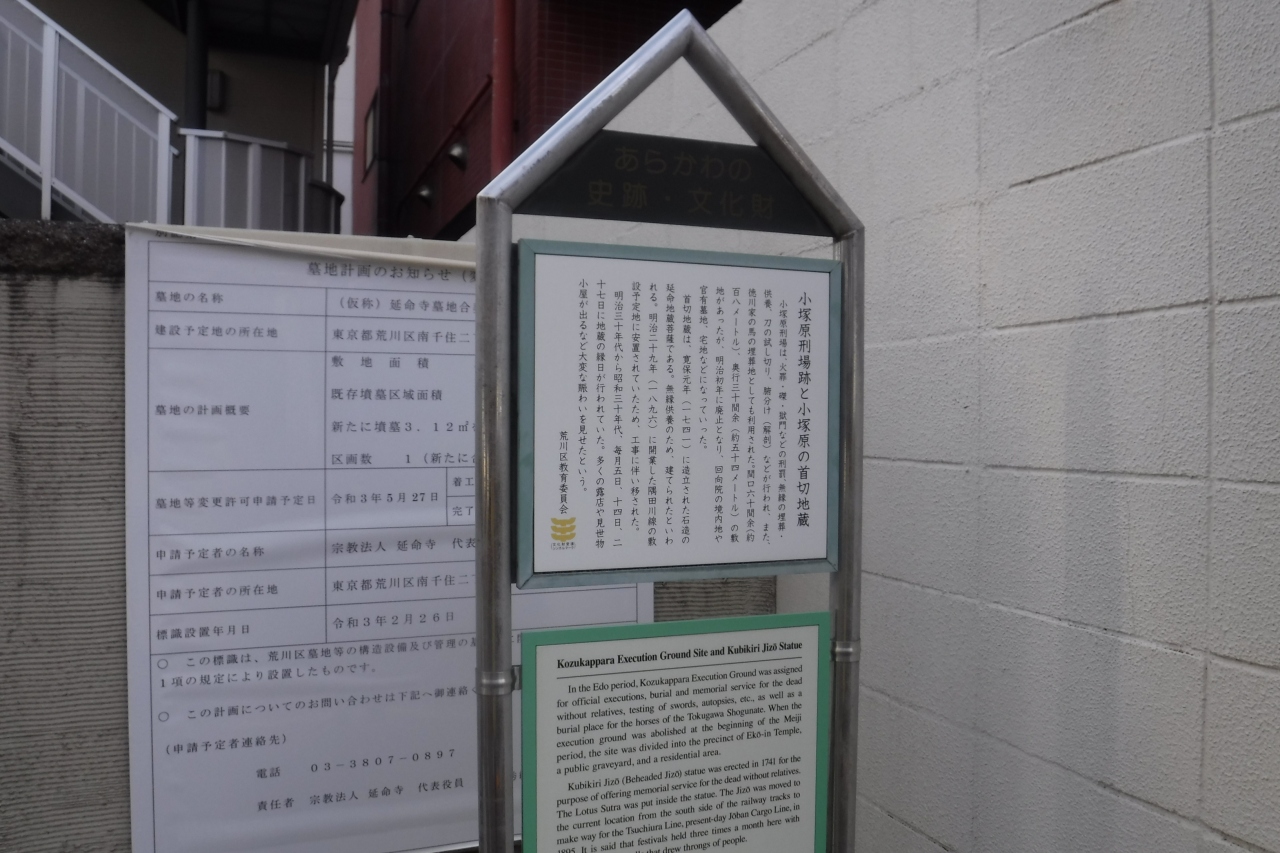 あらかわの
史跡・文化財
小塚原刑場跡と小塚原の首切地蔵
小塚原刑場は、火罪・磔・獄門などの刑罰、無縁の埋葬・
供養、刀の試し切り、腑分け（解剖）などが行われ、また、
徳川家の馬の埋葬地としても利用された。間口六十間余（約
百八メートル）、奥行三十間余（約五十四メートル）の敷
地があったが、明治初年に廃止となり、回向院の境内地や
官有墓地、宅地などになっていった。
首切地蔵は、寛保元年（一七四一）に造立された石造の
延命地蔵菩薩である。無縁供養のため、建てられたといわ
れる。明治二十九年（一八九六）に開業した隅田川線の敷
設予定地に安置されていたため、工事に伴い移された。
明治三十年代から昭和三十年代、毎月五日、十四日、二
十七日に地蔵の縁日が行われていた。多くの露店や見世物
小屋が出るなど大変な賑わいを見せたという。
荒川区教育委員会
Kozukappara Execution Ground Site and Kubikiri Jizō Statue
In the Edo period, Kozukappara Execution Ground was assigned
for official executions, burial and memorial service for the dead
without relatives, testing of swords, autopsies, etc., as well as a
burial place for the horses of the Tokugawa Shogunate. When the
execution ground was abolished at the beginning of the Meiji
period, the site was divided into the precinct of Ekō-in Temple,
a public graveyard, and a residential area.
Kubikiri Jizō (Beheaded Jizō) statue was erected in 1741 for the
purpose of offering memorial service for the dead without relatives.
The Lotus Sutra was put inside the statue. The Jizō was moved to
the current location from the south side of the railway tracks to
make way for the Tsuchiura Line, present-day Jōban Cargo Line, in
1895. It is said that festivals held three times a month here with
that drew throngs of people.
墓地計画のお知らせ
墓地の名称 （仮称）延命寺墓地合
建設予定地の所在地 東京都荒川区南千住二
墓地の計画概要
敷地面積
既存墳墓区域面積
新たに墳墓３．１２㎡
区画数 １（新たに
墓地等変更許可申請予定日 令和３年５月２７日 着工
完了
申請予定者の名称 宗教法人 延命寺 代表
申請予定者の所在地 東京都荒川区南千住二
標識設置年月日 令和３年２月２６日
○ この標識は、荒川区墓地等の構造設備及び管理の
１項の規定により設置したものです。
○ この計画についてのお問い合わせは下記へ御連絡
（申請予定者連絡先）
電話 ０３－３８０７－０８９７
責任者 宗教法人 延命寺 代表役員